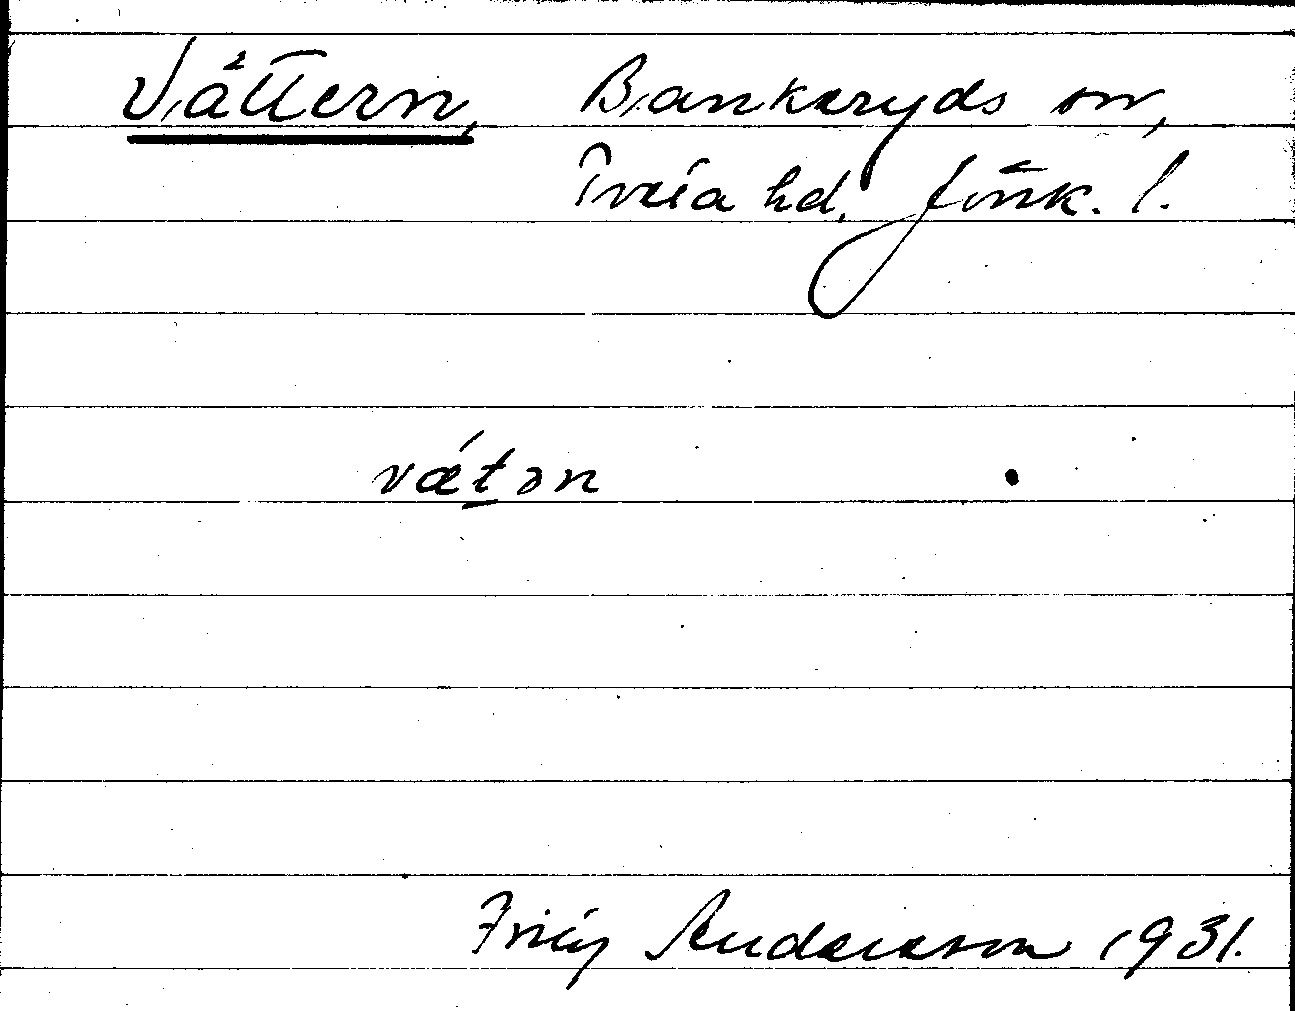 Vättern, Bankeryds sn,
Tveta hd, Jönk. l.
vǽt̲ən
Fritz Andersson 1931.